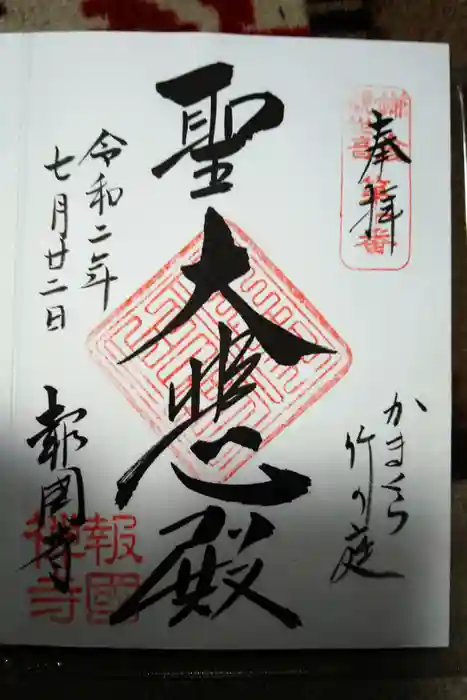 奉拝
かまくら
竹の庭
聖大悲殿
令和二年
七月廿二日
報国寺
報國
禅寺